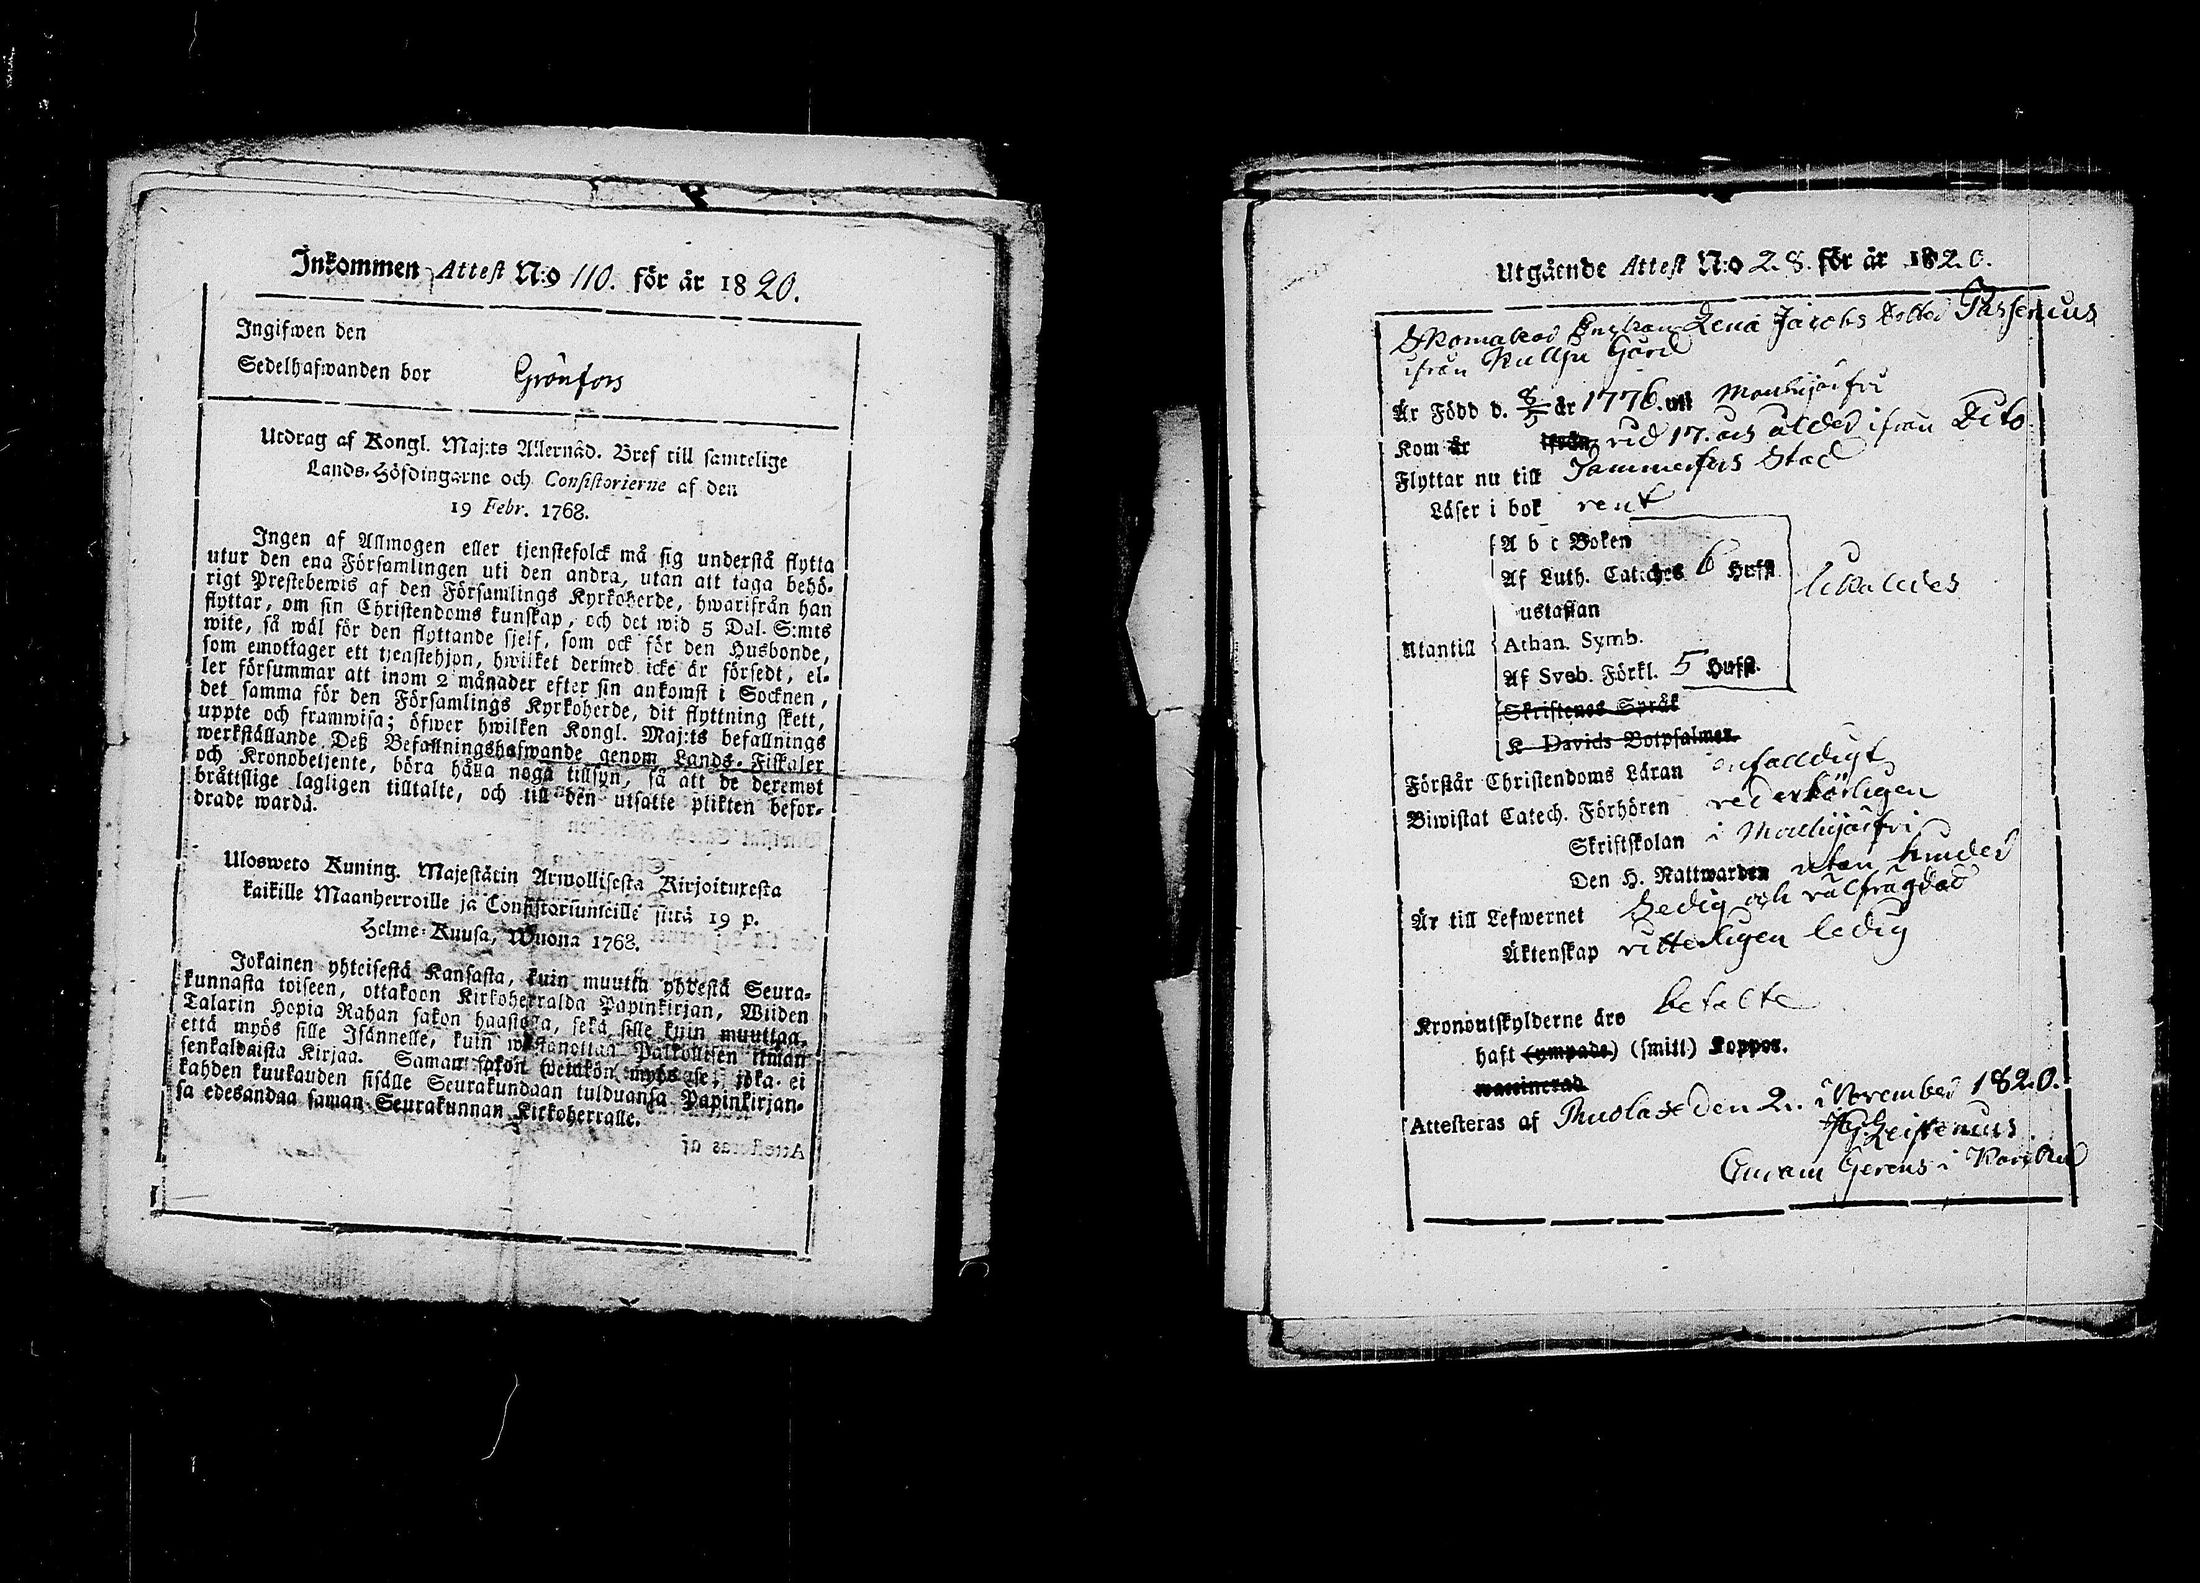 Inkommen Attest N:o 110. för år 1820.
Ingifwen den
Sedelhafwanden bor Grönfors
Utdrag af Kongl. Maj:ts Allernåd. Bref till samtelige
Lands-Höfdingarne och Consistorierne af den
19 Febr. 1768.
Ingen af Allmogen eller tjenstefolck må sig understå flytta
utur den ena Församlingen uti den andra, utan att taga behö-
rigt Prestebewis af den Församlings Kyrkoherde, hwarifrån han
flyttar, om sin Christendoms kunskap, och det wid 5 Dal. S:mts
wite, så wäl för den flyttande sjelf, som ock för den Husbonde,
som emottager ett tjenstehjon, hwilket dermed icke är försedt, el-
ler försummar att inom 2 månader efter sin ankomst i Socknen,
det samma för den Församlings Kyrkoherde, dit flyttning skett,
uppte och framwisa; öfwer hwilken Kongl. Maj:ts befallnings
werkställande Deß Befallningshafwande genom Lands-Fiskaler
och Kronobetjente, böra hålla noga tillsyn, så att de deremot
bråttslige lagligen tilltalte, och till den utsatte plikten befor-
drade warda.
Ulosweto Kuning. Majestätin Arwollisesta Kirjoituxesta
kaikille Maanherroille ja Consistoriumeille siitä 19 p.
Helme-Kuusa, Wuona 1768.
Jokainen yhteisestä Kansasta, kuin muutta yhdestä Seura-
kunnasta toiseen, ottakoon Kirkoherralda Papinkirjan, Wiiden
Talarin Hopia Rahan sakon haastolla, sekä sille kuin muuttaa,
että myös sille Isännelle, kuin wastanottaa Palkollisen ilman
senkaldaista Kirjaa. Saman sakon wetäkön myös se, joka ei
kahden kuukauden sisälle Seurakundaan tulduansa Papinkirjan-
sa edesandaa saman Seurakunnan Kirkoherralle.
Attesteras af
Utgående Attest N:o 28. för år 1820.
Skomakar Enkan Lena Jacobs Dotter
ifrån Kullju Gård
Är Född d. 8/5 år 1776. uti Mouhijärfvi
Kom år ifrån vid 17. års ålder ifrån Dito
Flyttar nu till Tammerfors Stad
Läser i bok rent
A b c Boken
Af Luth. Catches 6 Hufst.
ustaflan
Utantill Athan. Symb. likaledes
Af Sveb. Förkl. 5 Hufst.
Skriftenes Språk
K Davids Botpsalmer.
Förstår Christendoms Läran enfalldigt
Biwistat Catech. Förhören vederbörligen
Skriftskolan i Mouhijärfvi
Den H. Nattwarden utan hinder
Är till Lefwernet Sedig och välfrägdad
Äktenskap vitterligen ledig
Kronoutskylderne äro betalte
haft (ympade.) (smitt) koppor.
waccinerad
Attesteras af den 2. November 1820.